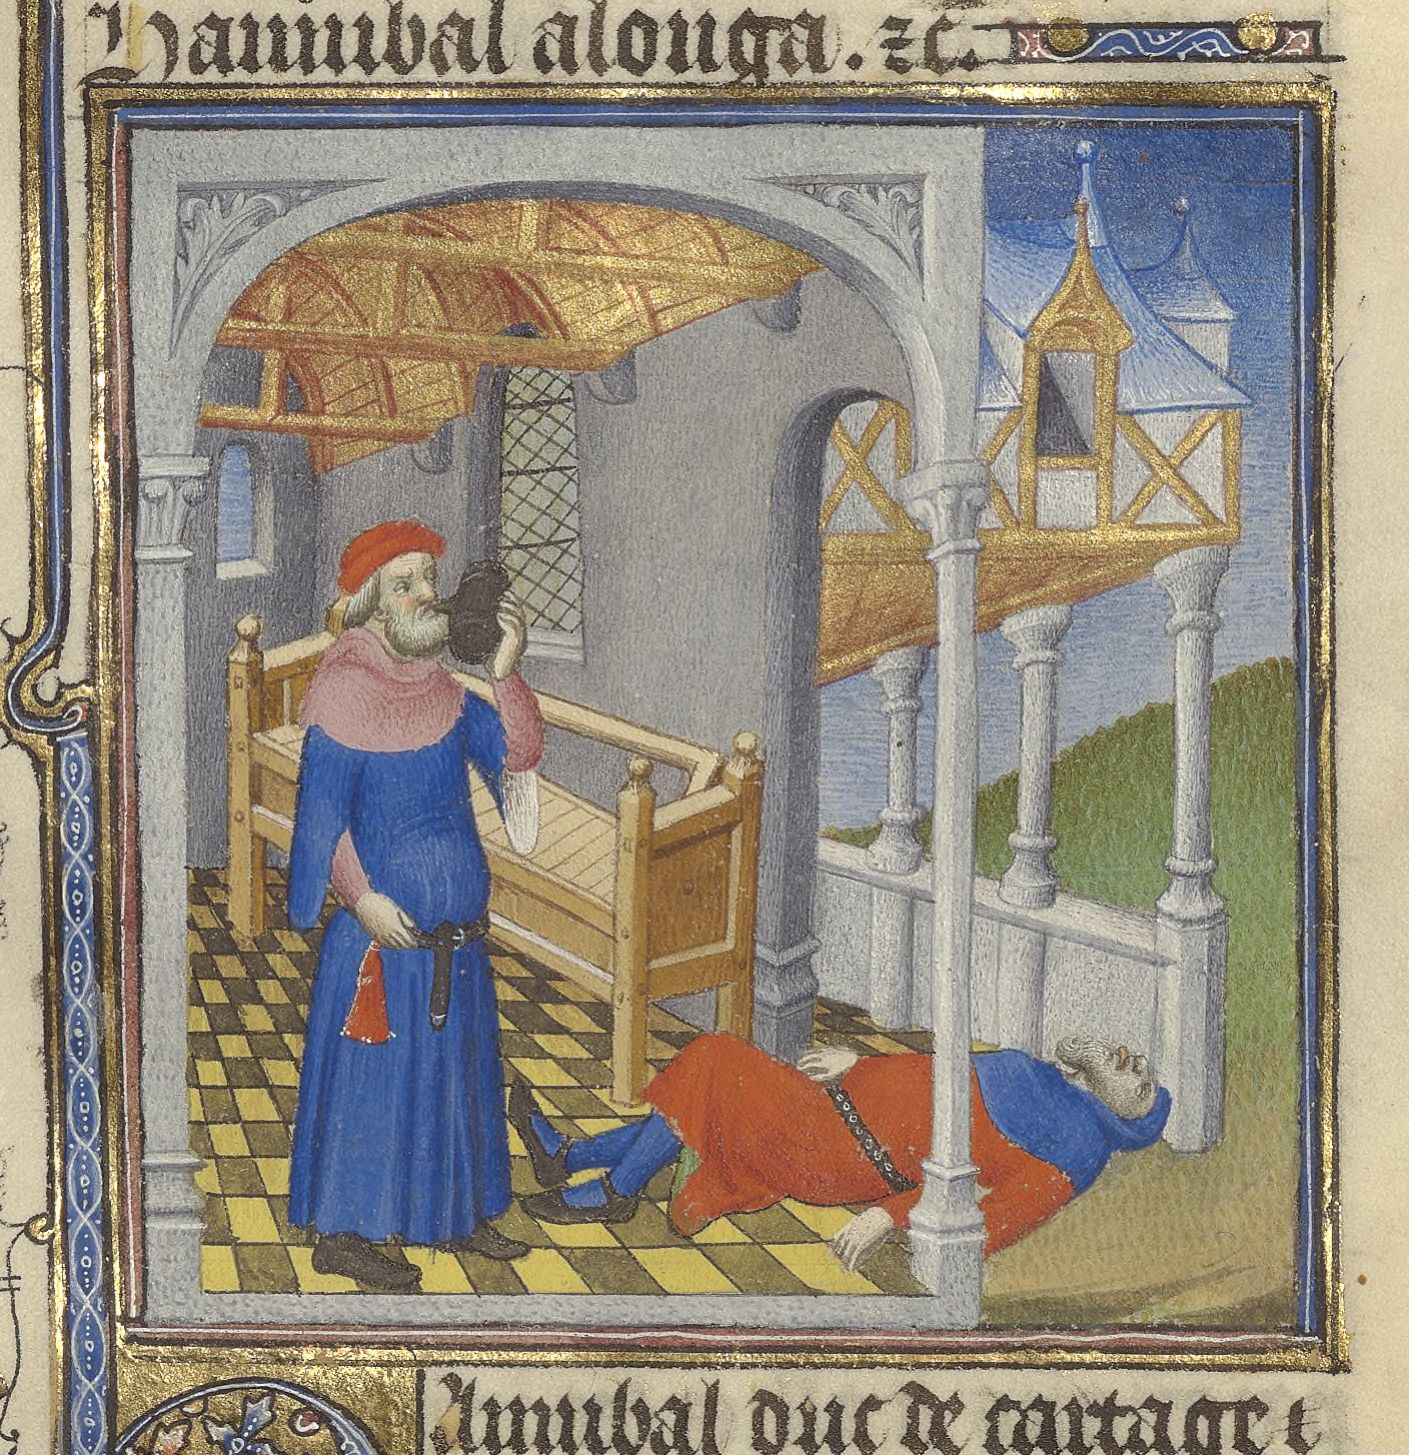 Hanibal alouga. ⁊c.
Annibal duc de cartage ⁊